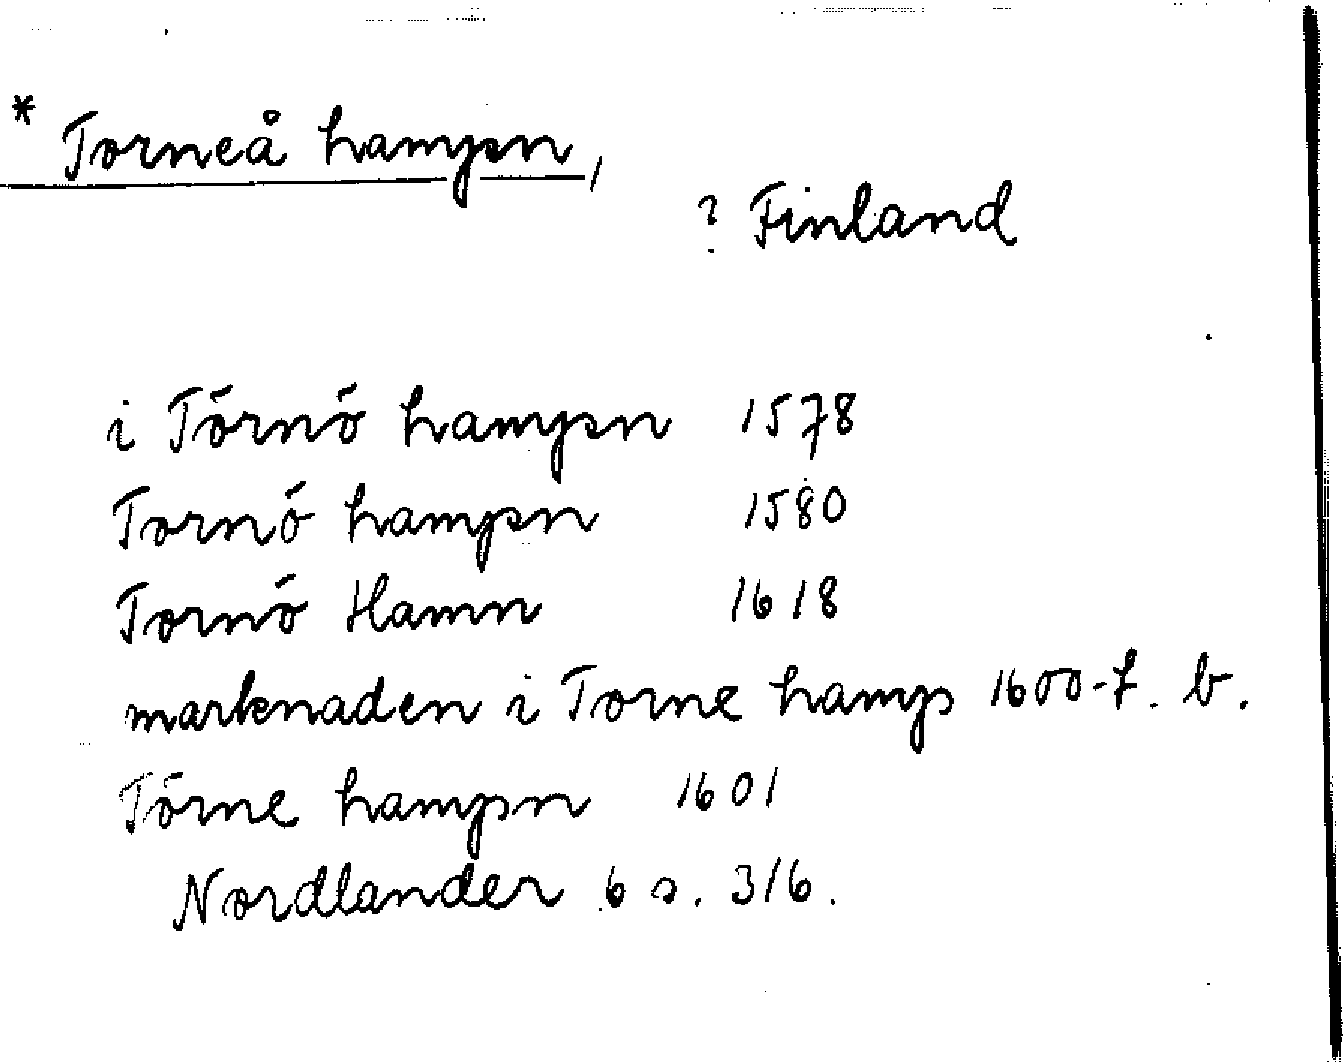 * Torneå hampn,
? Finland
i Törnö hampn 1578
Tornö hampn 1580
Tornö Hamn 1618
marknaden i Torne hamp 1600-t. b.
Törne hampn 1601
Nordlander 6 s. 316.